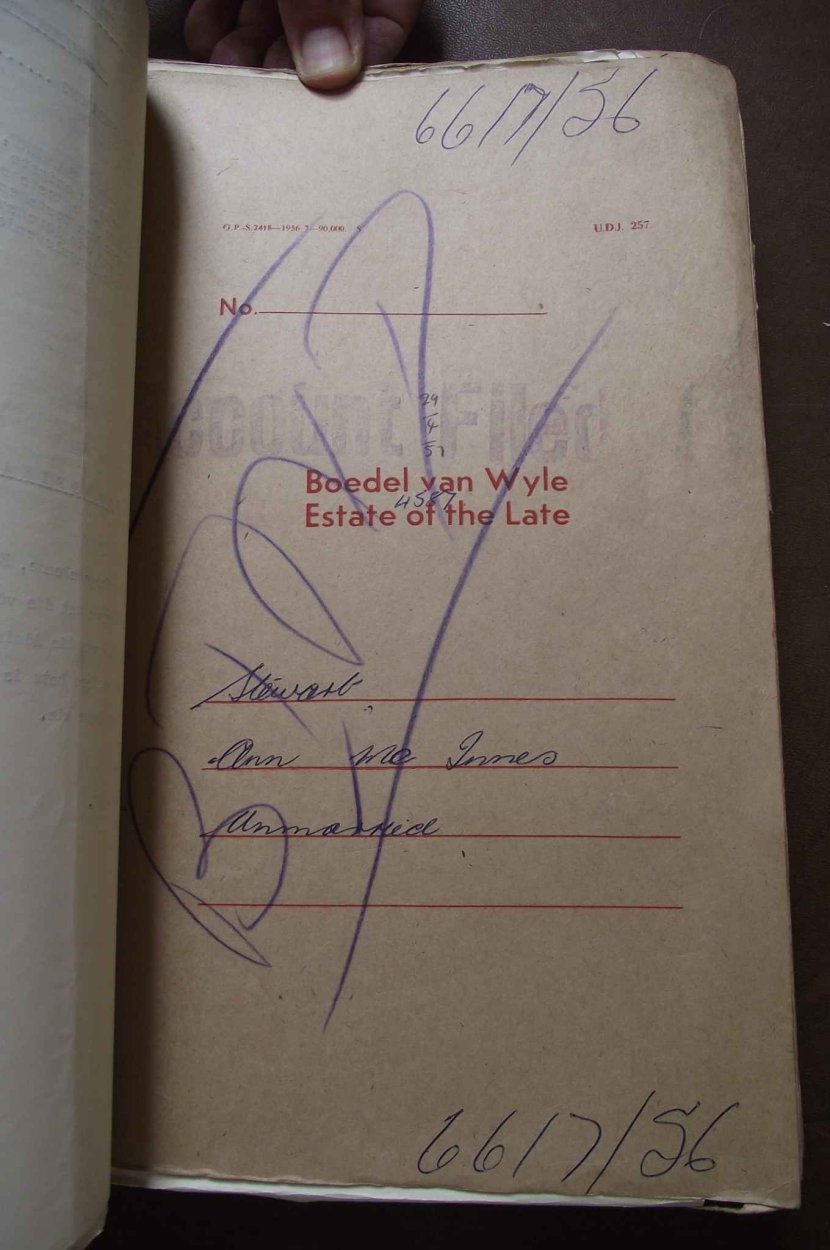 6617/56
G.P.-S.2418—1956-7—90,000. S
U.D.J. 257
No.
Account Filed
29
4
57
Boedel van Wyle
4587
Estate of the Late
Stewart
Ann Mc Innes
Unmarried
6617/56